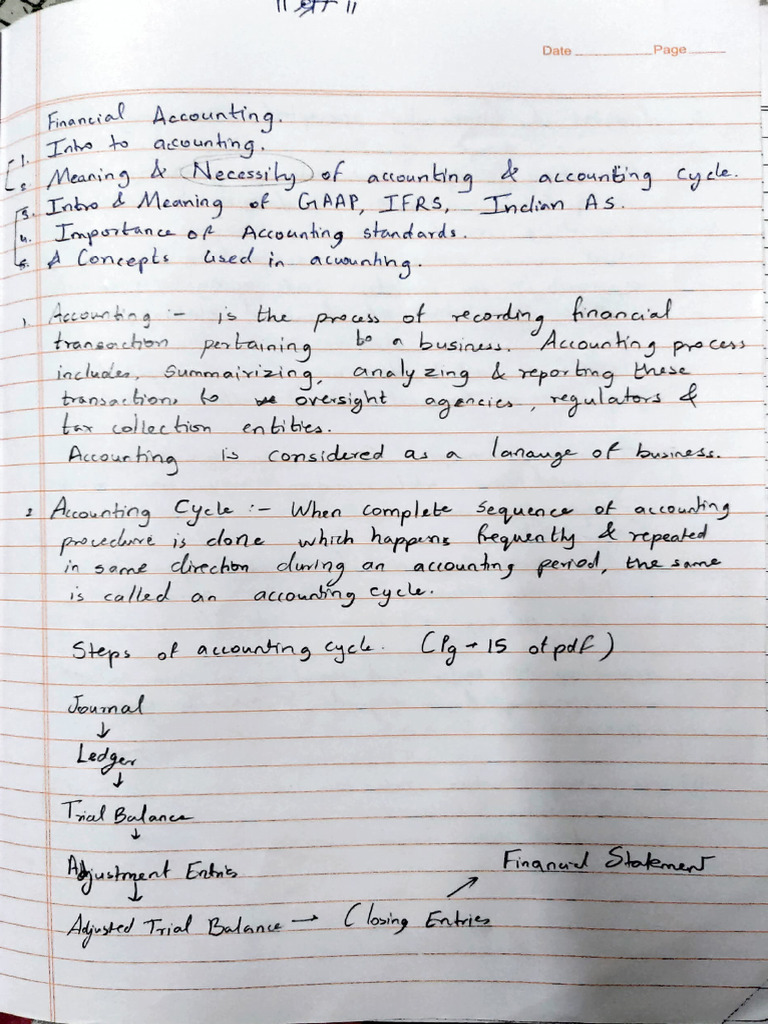 Date Page
Financial Accounting.
1. Intro to accounting.
2. Meaning & Necessity of accounting & accounting cycle.
3. Intro & Meaning of GAAP, IFRS, Indian AS.
4. Importance of Accounting standards.
5. Concepts used in accounting.
1. Accounting :- is the process of recording financial
transaction pertaining to a business. Accounting process
includes, summairizing, analyzing & reporting these
transactions to oversight agencies, regulators &
tax collection entities.
Accounting is considered as a lanauge of business.
2 Accounting Cycle :- When complete sequence of accounting
procedure is done which happens frequently & repeated
in same direction during an accounting period, the same
is called an accounting cycle.
Steps of accounting cycle. (Pg → 15 of pdf)
Journal
↓
Ledger
↓
Trial Balance
↓
Adjustment Entries
↓
Financial Statement
Adjusted Trial Balance → Closing Entries ↗